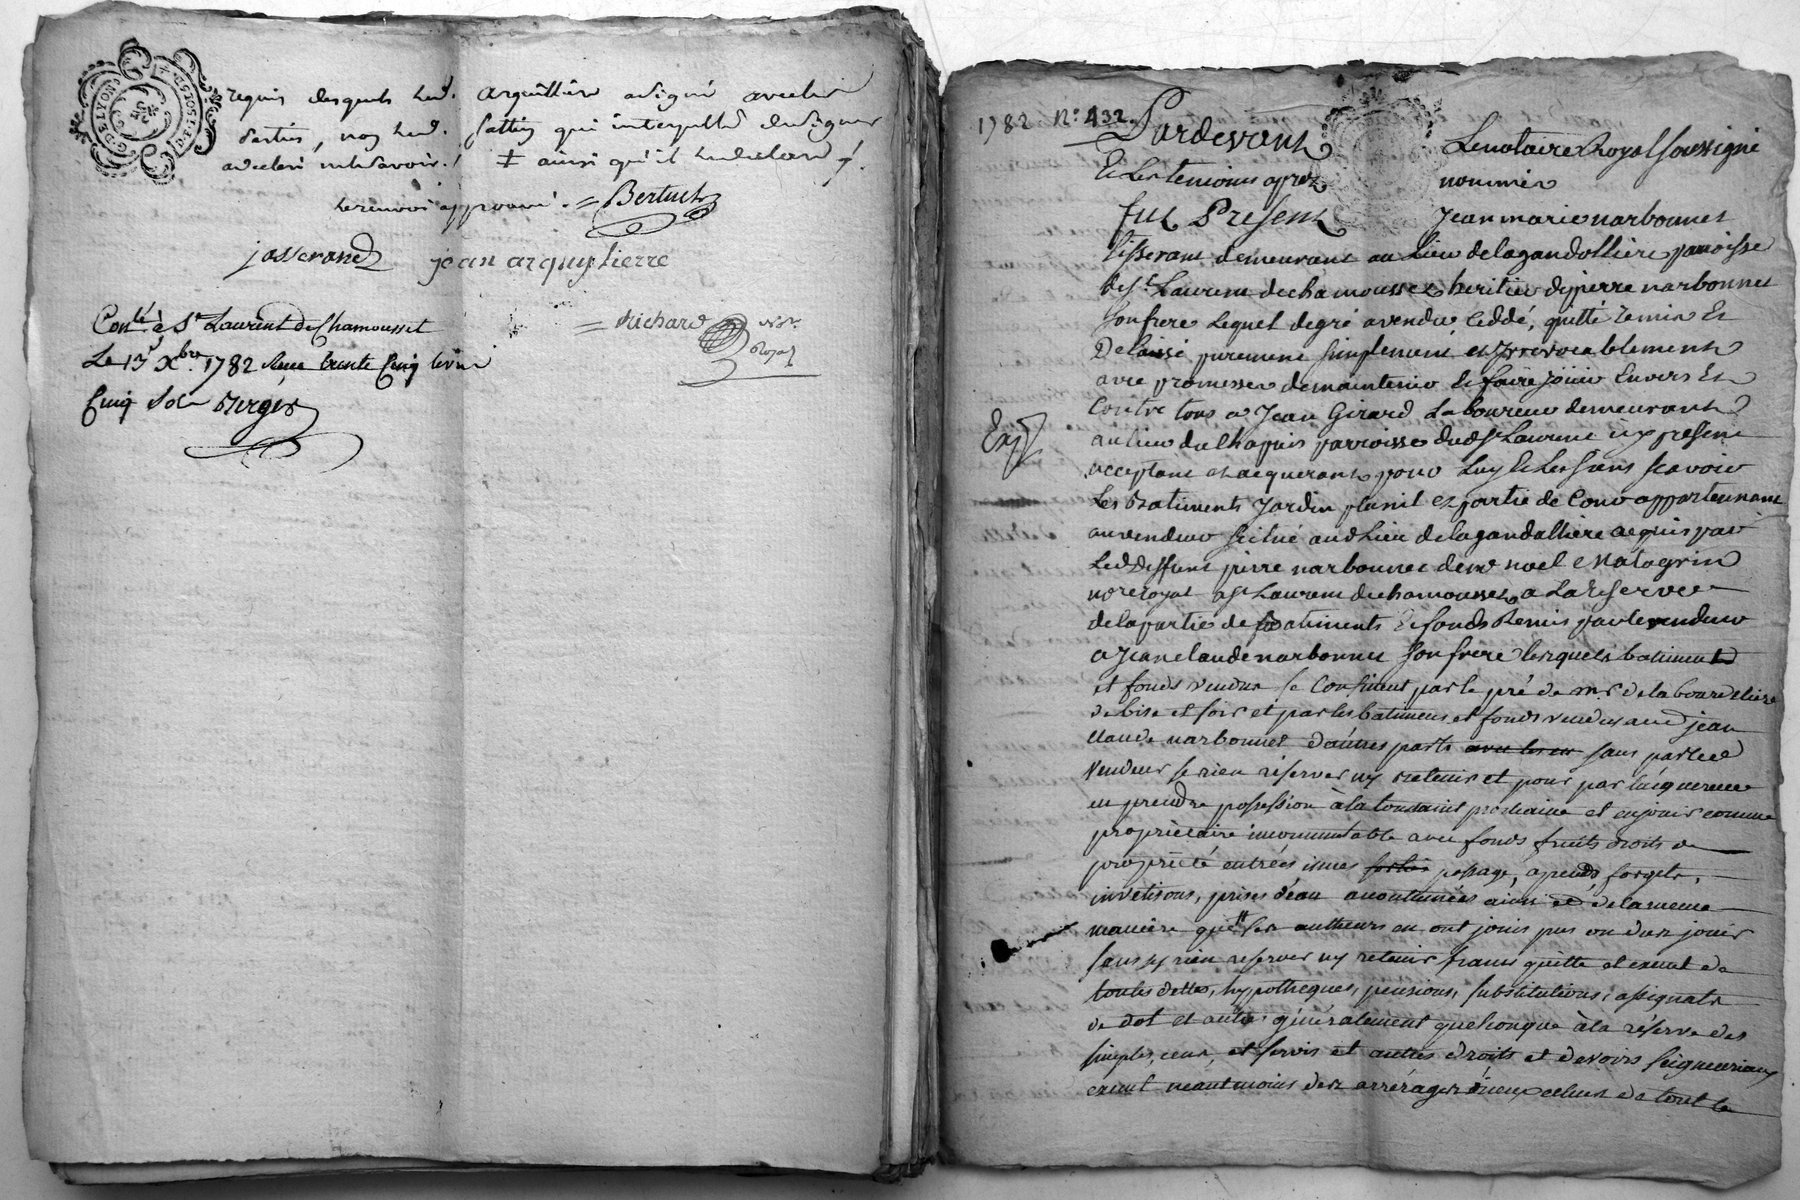 G. DE LYON
requis desquels led. arquilliere a signé avec les
parties, non led. qui interpellé de signer
a declaré ne le savoir. ǂ ainsi qu'il
le renvoi approuvé. = Bertuel
josserand jean arquillierre
= Richard Not. Royal
Con.lé à St. Laurent de Chamousset
Le 13 Xbre. 1782 Reçu trente cinq livres
cinq sols Berger
1782 N.o 432.
Pardevant Le notaire Royal soussigné
Et les temoins aprez nommés
fut Present Jean marie narbonnet
tisserant demeurant au Lieu de lagandolliere paroisse
de St. Laurent de chamousset heritier de pierre narbonnet
son frere Lequel de gré a vendu, ceddé, quitté remis Et
Delaissé purement simplement et irrevocablement
avec promesse de maintenir Et faire joüir Envers Et
Contre tous a Jean Girard Laboureur demeurant
au lieu du Chapuis parroisse dud. St. Laurent icy present
acceptant et acquerant pour Luy Et Les siens scavoir
Exp.
Les Batiments Jardin et partie de Cour appartenant
au vendeur scitué aud. Lieu de lagandolliere acquis par
Led. deffunt pierre narbonnet de me noel Matagrin
no.re royal a St. Laurent de chamousset a La Reserve
de la partie de Batiments Et fonds Remis par le vendeur
a Jean claude narbonnet son frere lesquels batiments
et fonds vendus se Confinent par le pré de mr. de la bourdeliere
de bise et soir et par les batimens et fonds vendus aud. jean
claude narbonnet d'autres parts sans par led.
vendeur se rien réserver ny retenir et pour par l'acquereur
en prendre possession à la toussaint prochaine et en jouir comme
proprietaire incommutable avec fonds fruits droits de
propriété entrées issues sorties passage,
prises d'eau accoutumées ainsi et de la meme
manière que ses autheurs en ont jouis pus ou dus jouir
sans sy rien reserver ny retenir francs quitte et exempt de
toutes dettes, hypotheques, pensions, substitutions, assignats
de dot et autre généralement quelconque à la réserve des
simples cens, et servis et autres droits et devoirs seigneuriaux
exempt néantmoins des arrérages d'iceux echus de tout le